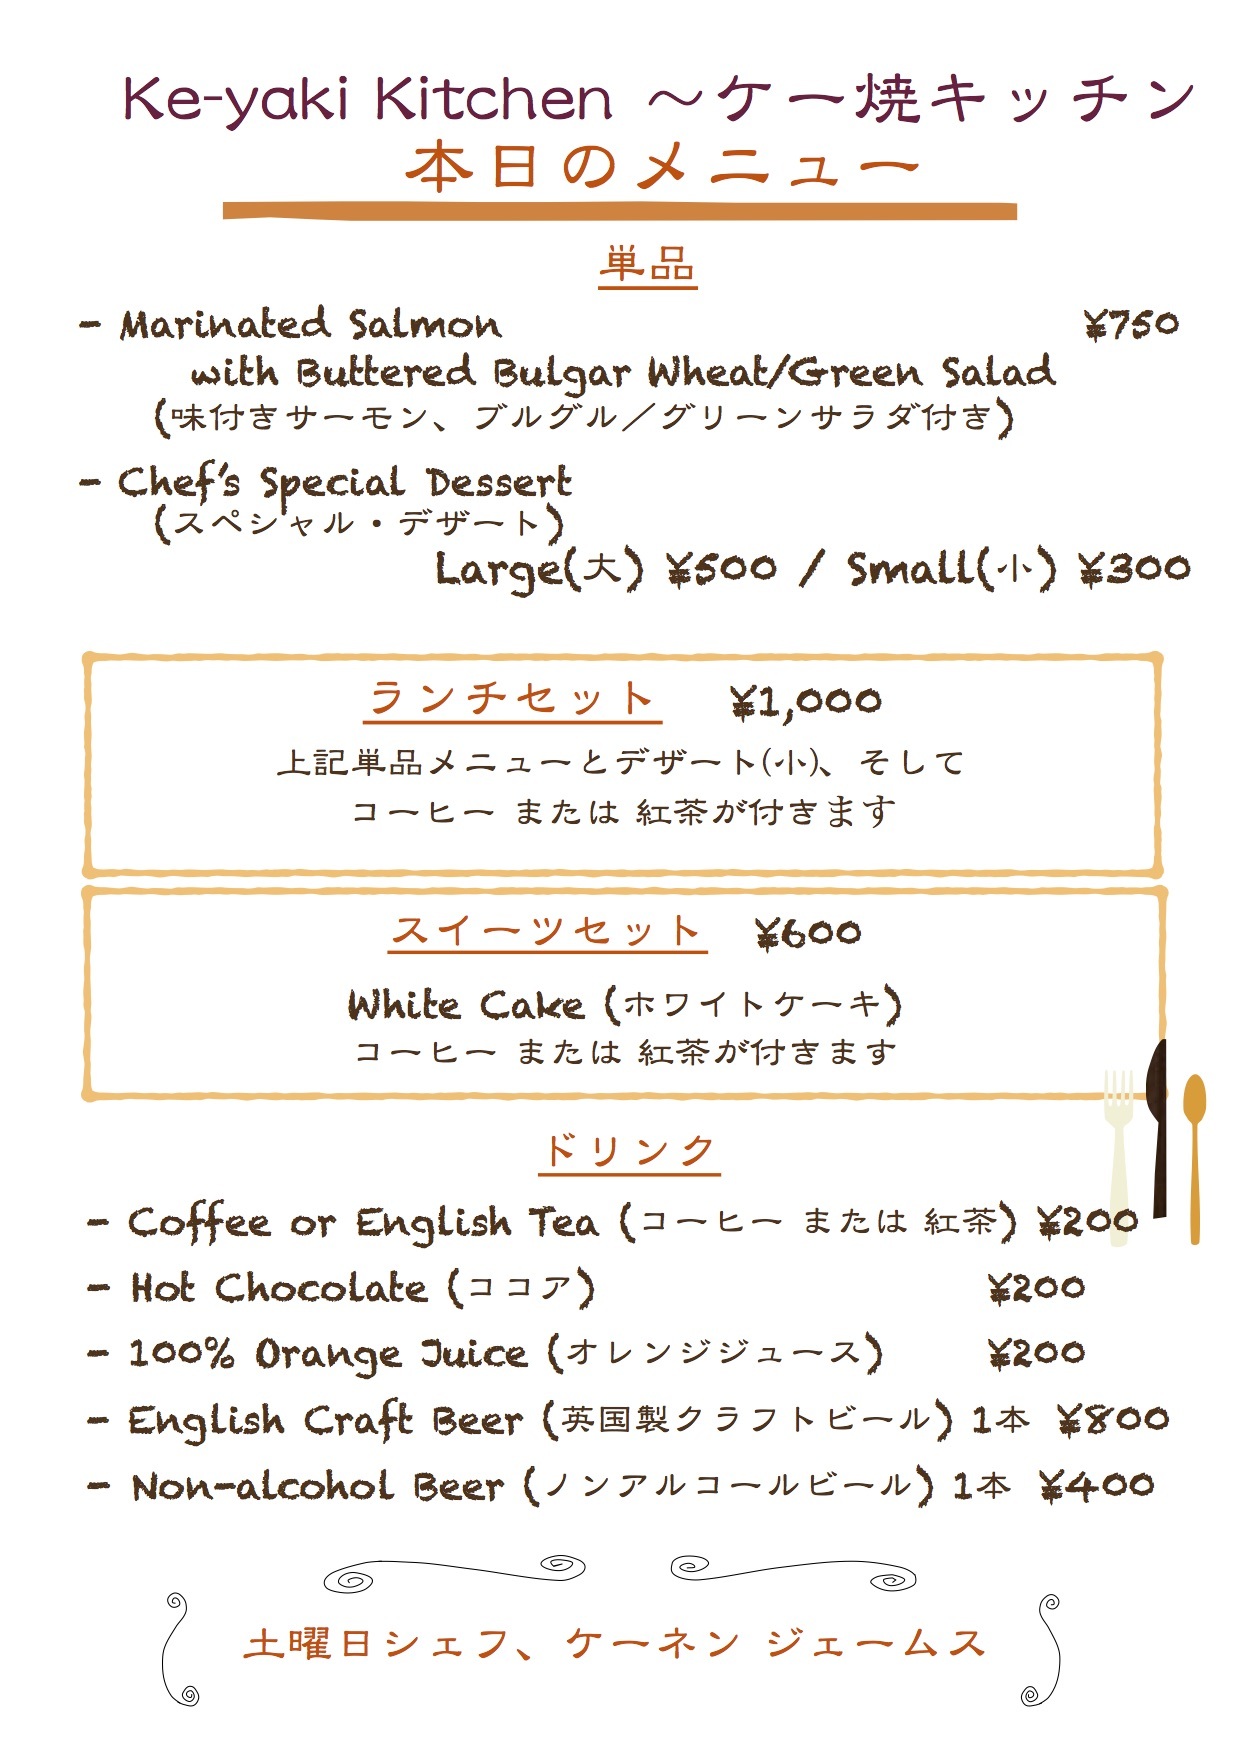 Ke-yaki Kitchen ～ケー焼キッチン
本日のメニュー
単品
- Marinated Salmon ¥750
with Buttered Bulgar Wheat/Green Salad
(味付きサーモン、ブルグル／グリーンサラダ付き)
- Chef's Special Dessert
(スペシャル・デザート)
Large(大) ¥500 / Small(小) ¥300
ランチセット ¥1,000
上記単品メニューとデザート(小)、そして
コーヒー または 紅茶が付きます
スイーツセット ¥600
White Cake (ホワイトケーキ)
コーヒー または 紅茶が付きます
ドリンク
- Coffee or English Tea (コーヒー または 紅茶) ¥200
- Hot Chocolate (ココア) ¥200
- 100% Orange Juice (オレンジジュース) ¥200
- English Craft Beer (英国製クラフトビール) 1本 ¥800
- Non-alcohol Beer (ノンアルコールビール) 1本 ¥400
土曜日シェフ、ケーネン ジェームス